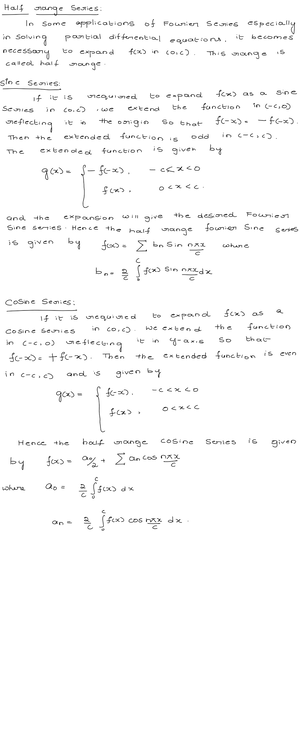 Half range Series:
In some applications of Fourier Series especially
in solving partial differential equations, it becomes
necessary to expand f(x) in (0,c). This range is
called half range.
Sine Series:
If it is required to expand f(x) as a Sine
Series in (0,c), we extend the function in (-c,0)
reflecting it in the origin so that f(-x) = -f(-x).
Then the extended function is odd in (-c,c).
The extended function is given by
g(x) = { -f(-x), -c≤x<0
f(x), 0<x<c.
and the expansion will give the desired Fourier
Sine series. Hence the half range fourier Sine series
is given by f(x) = ∑ bn Sin nπx/c where
bn = 2/c ∫₀ᶜ f(x) Sin nπx/c dx
Cosine Series:
If it is required to expand f(x) as a
Cosine series in (0,c). We extend the function
in (-c,0) reflecting it in y-axis so that
f(-x) = +f(-x). Then the extended function is even
in (-c,c) and is given by
g(x) = { f(-x), -c<x<0
f(x), 0<x<c
Hence the half range cosine Series is given
by f(x) = a₀/2 + ∑ an cos nπx/c
where a₀ = 2/c ∫₀ᶜ f(x) dx
an = 2/c ∫₀ᶜ f(x) cos nπx/c dx.